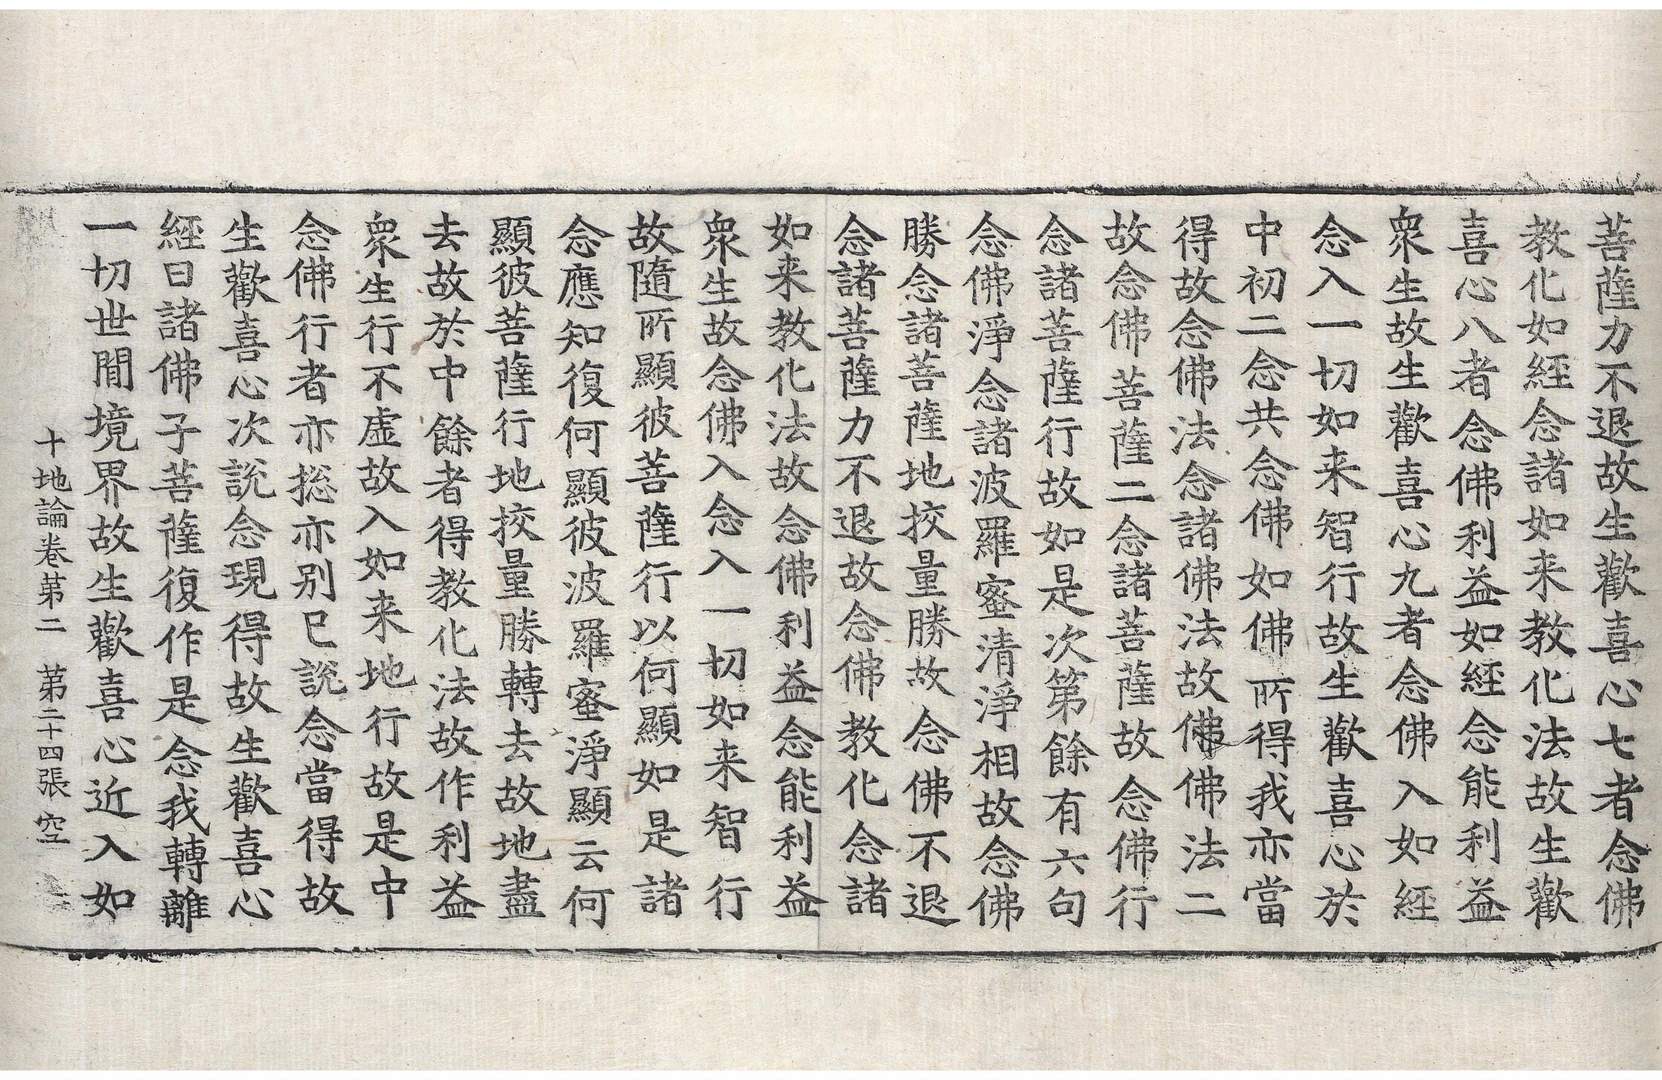 菩薩力不退故生歡喜心七者念佛
教化如經念諸如来教化法故生歡
喜心八者念佛利益如經念能利益
衆生故生歡喜心九者念佛入如經
念入一切如来智行故生歡喜心於
中初二念共念佛如佛所得我亦當
得故念佛法念諸佛法故佛佛法二
故念佛菩薩二念諸菩薩故念佛行
念諸菩薩行故如是次第餘有六句
念佛淨念諸波羅蜜清淨相故念佛
勝念諸菩薩地挍量勝故念佛不退
念諸菩薩力不退故念佛教化念諸
如来教化法故念佛利益念能利益
衆生故念佛入念入一切如来智行
故隨所顯彼菩薩行以何顯如是諸
念應知復何顯彼波羅蜜淨顯云何
顯彼菩薩行地挍量勝轉去故地盡
去故於中餘者得教化法故作利益
衆生行不虚故入如来地行故是中
念佛行者亦揔亦别已說念當得故
生歡喜心次說念現得故生歡喜心
經曰諸佛子菩薩復作是念我轉離
一切世閒境界故生歡喜心近入如
十地論卷第二 第二十四張 空